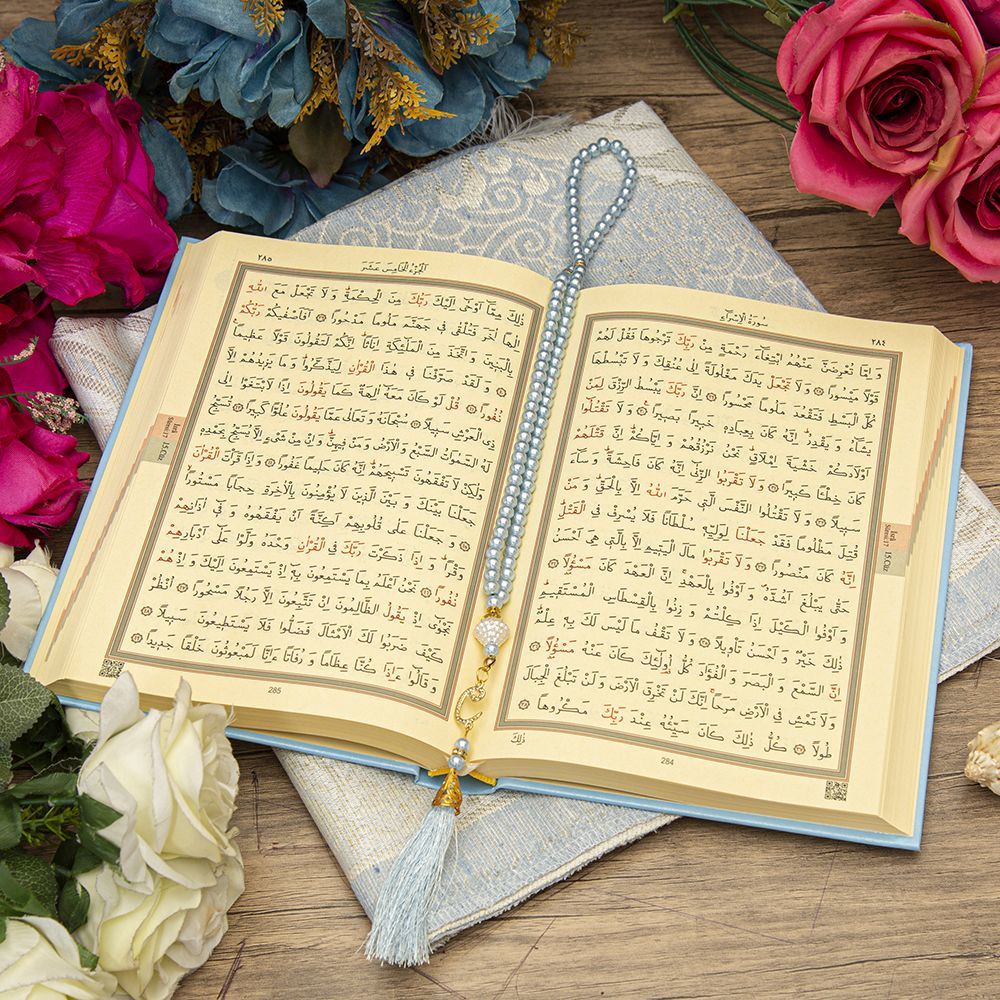 سُورَةُ الْاِسْرَاءِ ٢٨٤
وَ اِمَّا تُعْرِضَنَّ عَنْهُمُ ابْتِغَاءَ رَحْمَةٍ مِنْ رَبِّكَ تَرْجُوهَا فَقُلْ لَهُمْ
قَوْلًا مَيْسُورًا ٢٨ وَ لَا تَجْعَلْ يَدَكَ مَغْلُولَةً اِلٰى عُنُقِكَ وَ لَا تَبْسُطْهَا
كُلَّ الْبَسْطِ فَتَقْعُدَ مَلُومًا مَحْسُورًا ٢٩ اِنَّ رَبَّكَ يَبْسُطُ الرِّزْقَ لِمَنْ
يَشَاءُ وَ يَقْدِرُ اِنَّهُ كَانَ بِعِبَادِهِ خَبِيرًا بَصِيرًا ٣٠ وَ لَا تَقْتُلُوا
اَوْلَادَكُمْ خَشْيَةَ اِمْلَاقٍ نَحْنُ نَرْزُقُهُمْ وَ اِيَّاكُمْ اِنَّ قَتْلَهُمْ
كَانَ خِطْـًٔا كَبِيرًا ٣١ وَ لَا تَقْرَبُوا الزِّنٰى اِنَّهُ كَانَ فَاحِشَةً وَ سَاءَ
سَبِيلًا ٣٢ وَ لَا تَقْتُلُوا النَّفْسَ الَّتِي حَرَّمَ اللّٰهُ اِلَّا بِالْحَقِّ وَ مَنْ
قُتِلَ مَظْلُومًا فَقَدْ جَعَلْنَا لِوَلِيِّهِ سُلْطَانًا فَلَا يُسْرِفْ فِي الْقَتْلِ
اِنَّهُ كَانَ مَنْصُورًا ٣٣ وَ لَا تَقْرَبُوا مَالَ الْيَتِيمِ اِلَّا بِالَّتِي هِيَ اَحْسَنُ
حَتّٰى يَبْلُغَ اَشُدَّهُ وَ اَوْفُوا بِالْعَهْدِ اِنَّ الْعَهْدَ كَانَ مَسْؤُلًا ٣٤
وَ اَوْفُوا الْكَيْلَ اِذَا كِلْتُمْ وَ زِنُوا بِالْقِسْطَاسِ الْمُسْتَقِيمِ
ذٰلِكَ خَيْرٌ وَ اَحْسَنُ تَأْوِيلًا ٣٥ وَ لَا تَقْفُ مَا لَيْسَ لَكَ بِهِ عِلْمٌ
اِنَّ السَّمْعَ وَ الْبَصَرَ وَ الْفُؤَادَ كُلُّ اُولٰئِكَ كَانَ عَنْهُ مَسْؤُلًا ٣٦
وَ لَا تَمْشِ فِي الْاَرْضِ مَرَحًا اِنَّكَ لَنْ تَخْرِقَ الْاَرْضَ وَ لَنْ تَبْلُغَ الْجِبَالَ
طُولًا ٣٧ كُلُّ ذٰلِكَ كَانَ سَيِّئُهُ عِنْدَ رَبِّكَ مَكْرُوهًا ٣٨
ذٰلِكَ
284
15.Cüz
٢٨٥ اَلْجُزْءُ الْخَامِسَ عَشَرَ
ذٰلِكَ مِمَّا اَوْحٰى اِلَيْكَ رَبُّكَ مِنَ الْحِكْمَةِ وَ لَا تَجْعَلْ مَعَ اللّٰهِ
اِلٰهًا اٰخَرَ فَتُلْقٰى فِي جَهَنَّمَ مَلُومًا مَدْحُورًا ٣٩ اَفَاَصْفٰيكُمْ رَبُّكُمْ
بِالْبَنِينَ وَ اتَّخَذَ مِنَ الْمَلٰئِكَةِ اِنَاثًا اِنَّكُمْ لَتَقُولُونَ قَوْلًا عَظِيمًا
٤٠ وَ لَقَدْ صَرَّفْنَا فِي هٰذَا الْقُرْاٰنِ لِيَذَّكَّرُوا وَ مَا يَزِيدُهُمْ اِلَّا
نُفُورًا ٤١ قُلْ لَوْ كَانَ مَعَهُ اٰلِهَةٌ كَمَا يَقُولُونَ اِذًا لَابْتَغَوْا اِلٰى
ذِي الْعَرْشِ سَبِيلًا ٤٢ سُبْحَانَهُ وَ تَعَالٰى عَمَّا يَقُولُونَ عُلُوًّا كَبِيرًا ٤٣ تُسَبِّحُ
لَهُ السَّمٰوَاتُ السَّبْعُ وَ الْاَرْضُ وَ مَنْ فِيهِنَّ وَ اِنْ مِنْ شَيْءٍ اِلَّا يُسَبِّحُ بِحَمْدِهِ
وَلٰكِنْ لَا تَفْقَهُونَ تَسْبِيحَهُمْ اِنَّهُ كَانَ حَلِيمًا غَفُورًا ٤٤ وَ اِذَا قَرَأْتَ الْقُرْاٰنَ
جَعَلْنَا بَيْنَكَ وَ بَيْنَ الَّذِينَ لَا يُؤْمِنُونَ بِالْاٰخِرَةِ حِجَابًا مَسْتُورًا
٤٥ وَ جَعَلْنَا عَلٰى قُلُوبِهِمْ اَكِنَّةً اَنْ يَفْقَهُوهُ وَ فِي اٰذَانِهِمْ
وَقْرًا وَ اِذَا ذَكَرْتَ رَبَّكَ فِي الْقُرْاٰنِ وَحْدَهُ وَلَّوْا عَلٰى اَدْبَارِهِمْ
نُفُورًا ٤٦ نَحْنُ اَعْلَمُ بِمَا يَسْتَمِعُونَ بِهِ اِذْ يَسْتَمِعُونَ اِلَيْكَ وَ اِذْ هُمْ
نَجْوٰى اِذْ يَقُولُ الظَّالِمُونَ اِنْ تَتَّبِعُونَ اِلَّا رَجُلًا مَسْحُورًا ٤٧ اُنْظُرْ
كَيْفَ ضَرَبُوا لَكَ الْاَمْثَالَ فَضَلُّوا فَلَا يَسْتَطِيعُونَ سَبِيلًا ٤٨
وَ قَالُوا ءَاِذَا كُنَّا عِظَامًا وَ رُفَاتًا ءَاِنَّا لَمَبْعُوثُونَ خَلْقًا جَدِيدًا ٤٩
285
15.Cüz